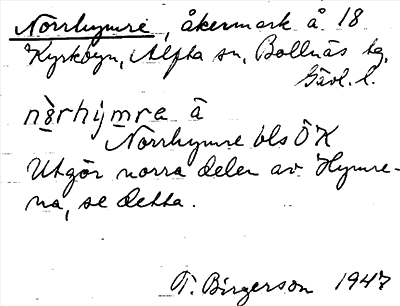 Norrhymre, åkermark å 18
Kyrkbyn, Alfta sn, Bollnäs tg,
Gävl. l.
nòrhymra å
Norrhymre bls ÖK
Utgör norra delen av Hymre-
na, se detta.
T. Birgerson 1947